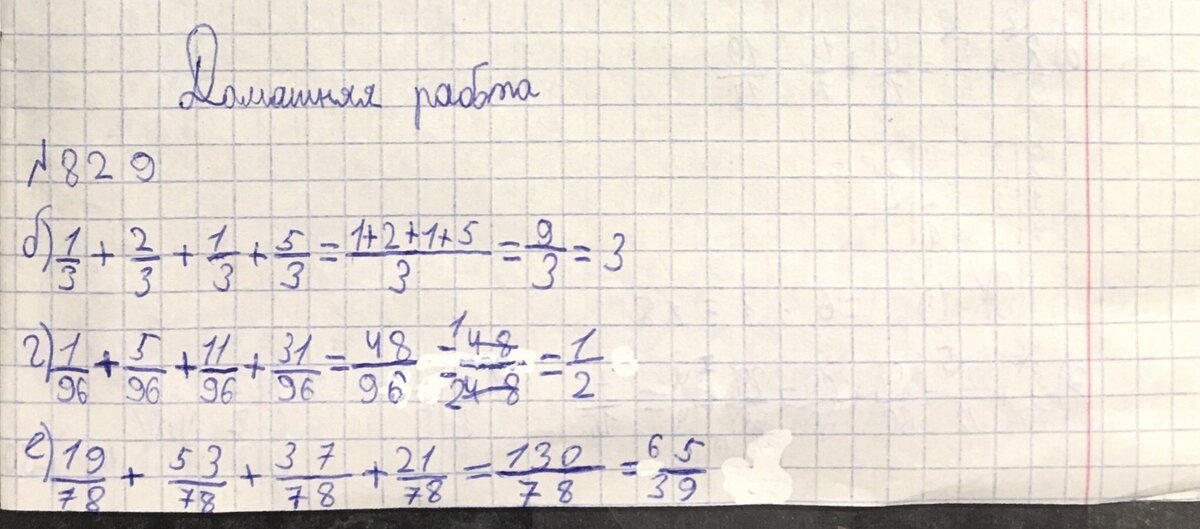 Домашняя работа
№829
б) 1/3 + 2/3 + 1/3 + 5/3 = (1+2+1+5)/3 = 9/3 = 3
г) 1/96 + 5/96 + 11/96 + 31/96 = 48/96 = 1 48/2 48 = 1/2
е) 19/78 + 53/78 + 37/78 + 21/78 = 130/78 = 65/39